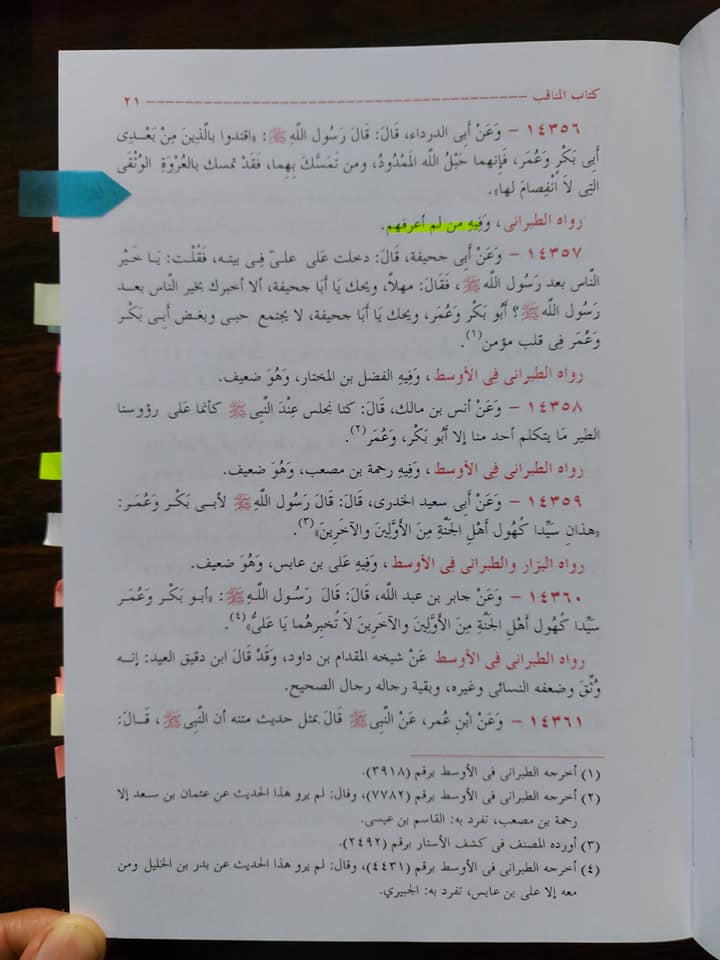 كتاب المناقب ــــــــــــــــــــــــــــــــــــــــ ٢١
١٤٣٥٦ – وَعَنْ أبى الدرداء، قَالَ: قَالَ رَسُول اللَّه ﷺ: «اقتدوا بالَّذِينَ مِنْ بَعْدِى
أبِى بَكْرٍ وَعُمَر، فَإنهما حَبْلُ اللَّه المَمْدُودُ، ومن تَمَسَّكَ بِهِما، فَقَدْ تمسك بالعُرْوَةِ الوُثْقَى
التِى لاَ انْفِصامَ لها».
رواه الطبرانى، وَفِيهِ من لم أعرفهم.
١٤٣٥٧ – وَعَنْ أبى جحيفة، قَالَ: دخلت عَلَى علىّ فِى بيته، فَقُلْت: يَا خَيْر
النَّاس بعد رَسُول اللَّه ﷺ، فَقَالَ: مهلاً، ويحك يَا أَبَا جحيفة، ألا أخبرك بخير النَّاس بعد
رَسُول اللَّه ﷺ؟ أَبُو بَكْر وَعُمَر، ويحك يَا أَبَا جحيفة، لا يجتمع حبى وبغض أبِى بَكْر
وَعُمَر فِى قلب مؤمن(١).
رواه الطبرانى فى الأوسط، وَفِيهِ الفضل بن المختار، وَهُوَ ضعيف.
١٤٣٥٨ – وَعَنْ أنس بن مالك، قَالَ: كنا نجلس عِنْدَ النَّبِى ﷺ كأنما عَلَى رؤوسنا
الطير مَا يتكلم أحد منا إلا أَبُو بَكْر، وَعُمَر(٢).
رواه الطبرانى فى الأوسط، وَفِيهِ رحمة بن مصعب، وَهُوَ ضعيف.
١٤٣٥٩ – وَعَنْ أبى سعيد الخدرى، قَالَ: قَالَ رَسُول اللَّه ﷺ لأبِى بَكْر وَعُمَر:
«هذانِ سَيِّدا كُهُول أَهْلِ الجَنَّةِ مِنَ الأَوَّلِينَ وَالآخَرِينَ»(٣).
رواه البزار والطبرانى فى الأوسط، وَفِيهِ عَلى بن عابس، وَهُوَ ضعيف.
١٤٣٦٠ – وَعَنْ جابر بن عبد اللَّه، قَالَ: قَالَ رَسُول اللَّه ﷺ: «أبو بَكْر وَعُمَر
سَيِّدا كُهُول أَهْلِ الجَنَّةِ مِنَ الأَوَّلِينَ والآخَرِينَ لاَ تُخبِرهُما يَا عَلىُّ»(٤).
رواه الطبرانى فى الأوسط عَنْ شيخه المقدام بن داود، وَقَدْ قَالَ ابن دقيق العيد: إنه
وُثِّقَ وضعفه النسائى وغيره، وبقية رجاله رجال الصحيح.
١٤٣٦١ – وَعَنْ ابْنِ عُمر، عَنْ النَّبِى ﷺ قَالَ بمثل حديث متنه أن النَّبِى ﷺ، قَالَ:
(١) أخرجه الطبرانى فى الأوسط برقم (٣٩١٨).
(٢) أخرجه الطبرانى فى الأوسط برقم (٧٧٨٢)، وقال: لم يرو هذا الحديث عن عثمان بن سعد إلا
رحمة بن مصعب، تفرد به: القاسم بن عيسى.
(٣) أورده المصنف فى كشف الأستار برقم (٢٤٩٢).
(٤) أخرجه الطبرانى فى الأوسط برقم (٤٤٣١)، وقال: لم يرو هذا الحديث عن بدر بن الخليل ومن
معه إلا على بن عابس، تفرد به: الجبيري.